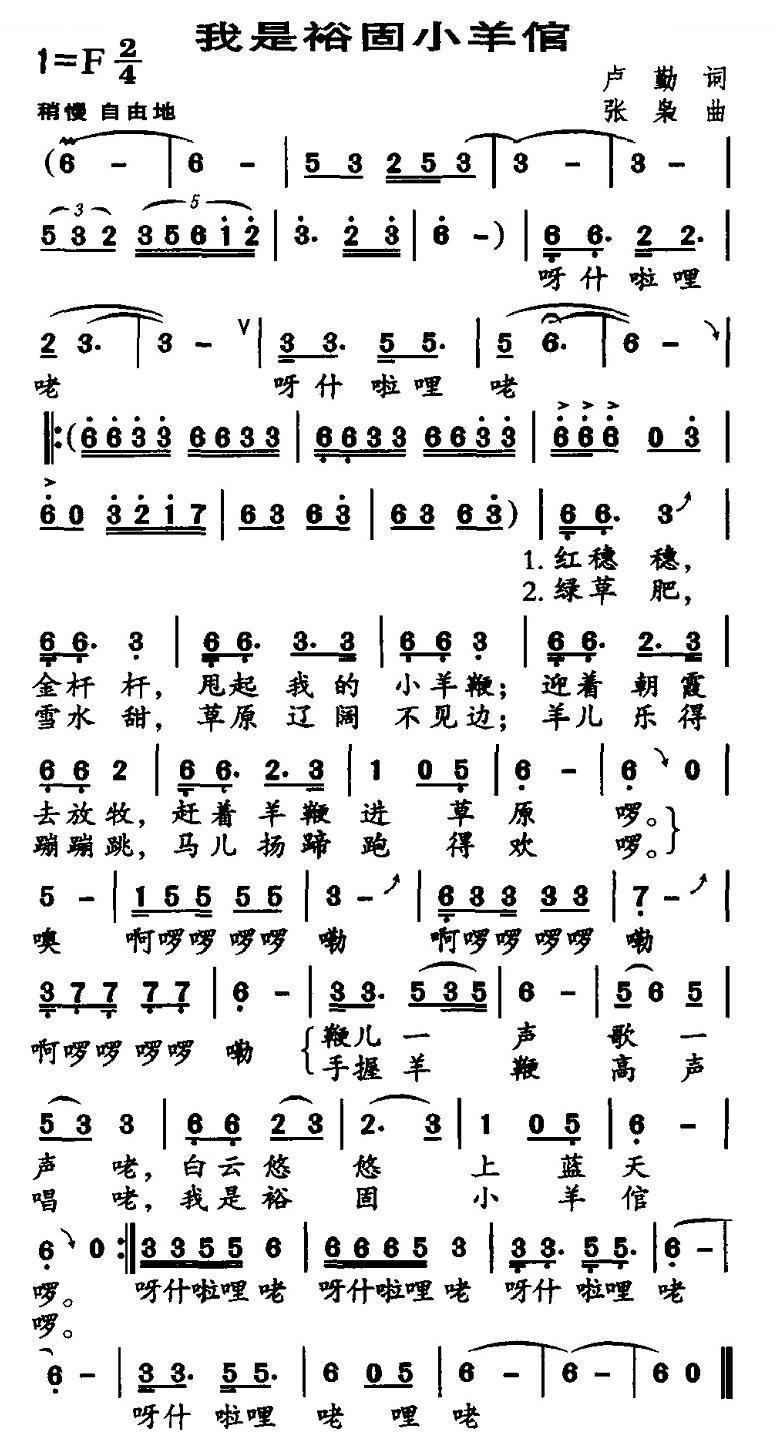 我是裕固小羊倌
1=F 2/4
卢勤词
稍慢 自由地
张枭曲
(6 - | 6 - | 5 3 2 5 3 | 3 - | 3 - |
3 5
5 3 2 3 5 6 1 2 | 3. 2 3 | 6 - ) | 6 6. 2 2. |
呀什 啦哩
2 3. | 3 - ∨ | 3 3. 5 5. | 5 6. | 6 - |
咾 呀什 啦哩 咾
‖: (6 6 3 3 6 6 3 3 | 6 6 3 3 6 6 3 3 | 6 6 6 0 3 |
6 0 3 2 1 7 | 6 3 6 3 | 6 3 6 3 ) | 6 6. 3 |
1. 红穗 穗,
2. 绿草 肥,
6 6. 3 | 6 6. 3. 3 | 6 6 3 | 6 6. 2. 3 |
金杆 杆, 甩起 我的 小羊鞭; 迎着 朝霞
雪水 甜, 草原 辽阔 不见边; 羊儿 乐得
6 6 2 | 6 6. 2. 3 | 1 0 5 | 6 - | 6 0 |
去放牧, 赶着 羊鞭 进 草 原 啰。
蹦蹦跳, 马儿 扬蹄 跑 得 欢 啰。
5 - | 1 5 5 5 5 | 3 - | 6 3 3 3 3 | 7 - |
噢 啊啰啰 啰啰 嘞 啊啰啰 啰啰 嘞
3 7 7 7 7 | 6 - | 3 3. 5 3 5 | 6 - | 5 6 5 |
啊啰啰 啰啰 嘞 鞭儿 一 声 歌 一
手握 羊 鞭 高 声
5 3 3 | 6 6 2 3 | 2. 3 | 1 0 5 | 6 - |
声 咾, 白云 悠 悠 上 蓝 天
唱 咾, 我是 裕 固 小 羊 倌
6 0 :‖ 3 3 5 5 6 | 6 6 6 5 3 | 3 3. 5 5. | 6 - |
啰。 呀什啦哩咾 呀什啦哩咾 呀什 啦哩 咾
啰。
6 - | 3 3. 5 5. | 6 0 5 | 6 - | 6 - | 6 0 ‖
呀什 啦哩 咾 哩 咾